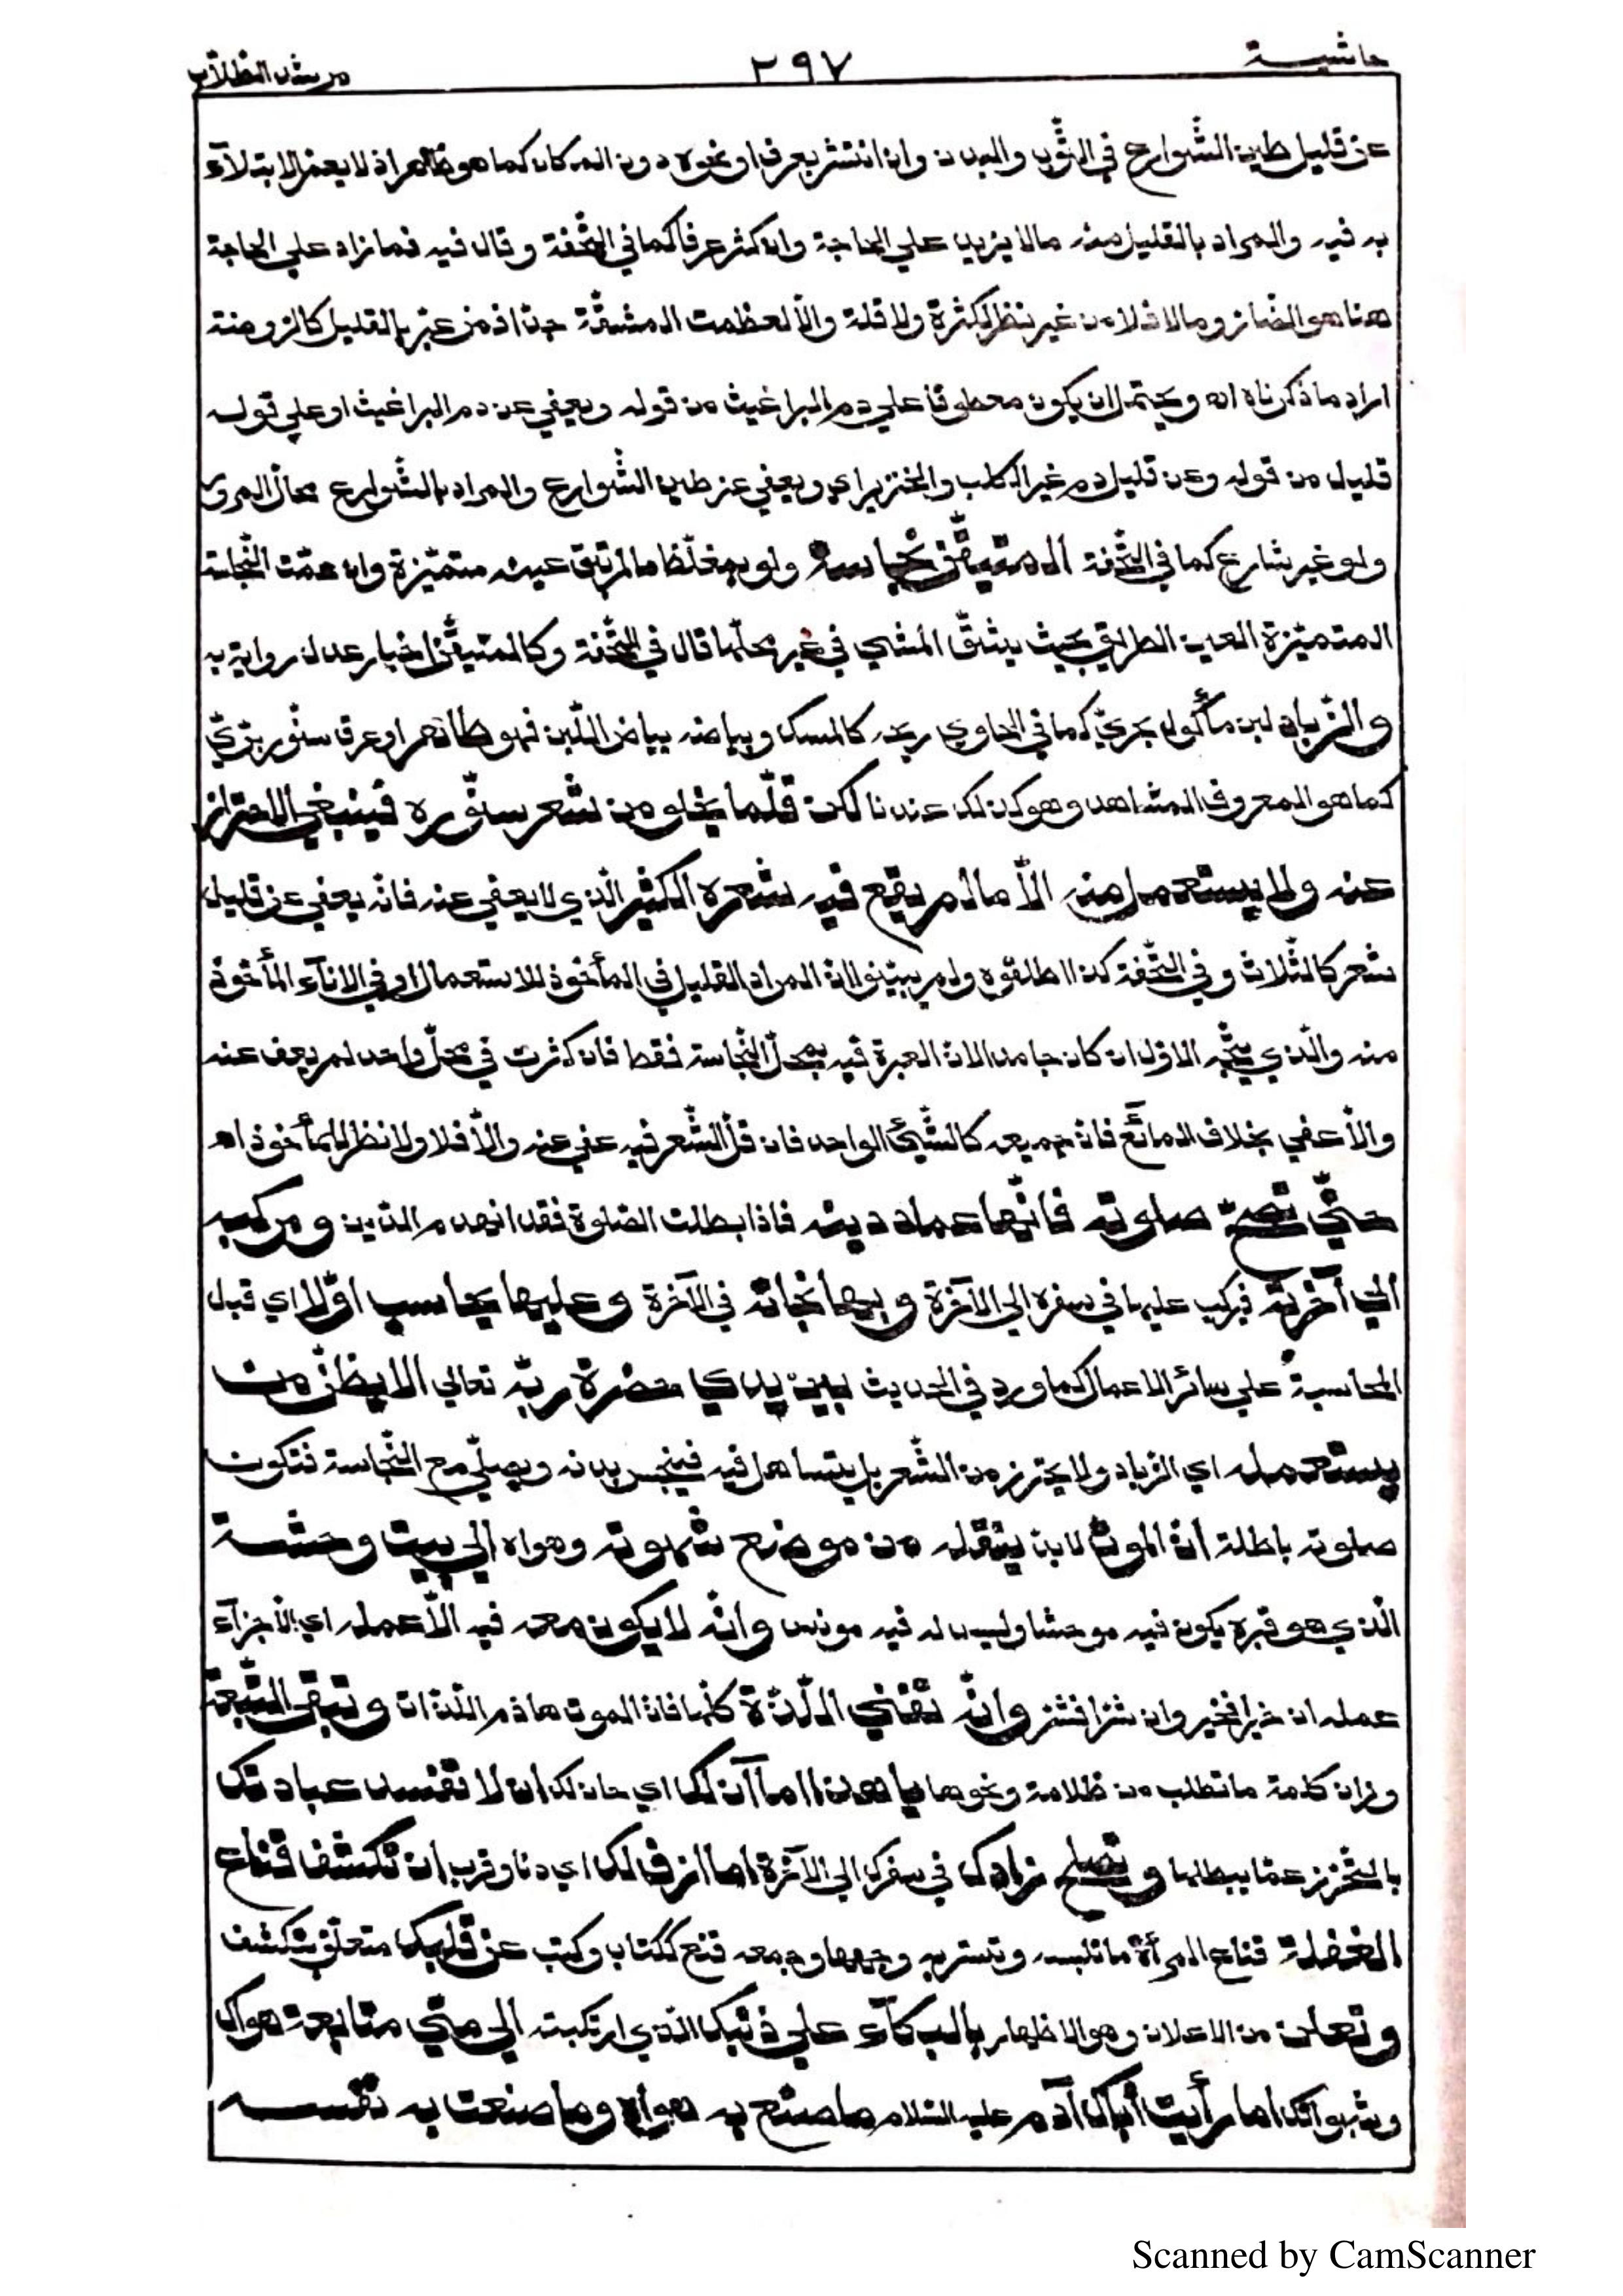 حاشية ٢٩٧ مرشد الطلاب
عن قليل طين الشوارع في الثّوب والبدن وان انتشر بعرق او نحوه دون المكان كما هو ظاهر اذ لا يعم الابتلآء
به فيه والمراد بالقليل منه مالا يزيد علي الحاجة وان كثر عرفا كما في التّحفة وقال فيه فما زاد علي الحاجة
هنا هو الضار ومالا فلا من غير نظر لكثرة ولا قلة والّا لعظمت المشقّة جدّا فمن عبّر بالقليل كالروضة
اراد ما ذكرناه اه ويحتمل ان يكون معطوفا علي دم البراغيث من قوله ويعفي عن دم البراغيث او علي قوله
قليل من قوله وعن قليل دم غير الكلب والخنزير اي ويعفي عن طين الشّوارع والمراد بالشّوارع محلّ المرور
ولو غير شارع كما في التّحفة المتيقّن نجاسته ولو بمغلّظ مالم تبق عينه متميّزة وان عمّت النّجاسة
المتميّزة العين الطريق بحيث يشقّ المشي في غير محلّها قال في التّحفة وكالمتيقّن اخبار عدل رواية به
والزّباد لبن مأكول بحريّ كما في الحاوي ريحه كالمسك وبياضه بياض اللّبن فهو طاهر او عرق سنّور برّيّ
كما هو المعروف المشاهد وهو كذلك عندنا لكن قلّما يخلو من شعر سنّوره فينبغي الاحتراز
عنه ولا يستعمل منه الّا مالم يقع فيه شعره الكثير الّذي لا يعفي عنه فانّه يعفي عن قليل
شعر كالثّلاث وفي التّحفة كذا اطلقوه ولم يبيّنوا انّ المراد القليل في المأخوذ للاستعمال او في الانآء المأخوذ
منه والّذي يتّجه الاوّل ان كان جامدا لانّ العبرة فيه بمحلّ النّجاسة فقط فان كثرت في محلّ واحد لم يعف عنه
والّا عفي بخلاف المائع فانّ جميعه كالشّيئ الواحد فان قلّ الشّعر فيه عفي عنه والّا فلا ولا نظر للمأخوذ اه
حتّي تصحّ صلوته فانّها عماد دينه فاذا بطلت الصّلوة فقد انهدم الدّين ومركبه
الي آخرته فيركب عليها في سفره الي الآخرة وبها نجاته في الآخرة وعليها يحاسب اوّلا اي قبل
المحاسبة علي سائر الاعمال كما ورد في الحديث بين يدي حضرة ربّه تعالي الا يظنّ من
يستعمله اي الزباد ولا يحترز من الشّعر بل يتساهل فيه فينجس بدنه ويصلّي مع النّجاسة فتكون
صلوته باطلة انّ الموت لابد ينقله من موضع شهوته وهواه الي بيت وحشة
الّذي هو قبره يكون فيه موحشا وليس له فيه مونس وانّه لا يكون معه فيه الّا عمله اي الّا جزآء
عمله ان خيرا فخير وان شرّا فشر وانّه تفني اللّذّة كلّها فانّ الموت هاذم اللّذّات وتبقي التّبعة
وزان كلمة ما تطلب من ظلامة ونحوها يا هذا اما آن لك اي حان لك ان لا تفسد عبادتك
بالتّحرز عمّا يبطلها وتصلح زادك في سفرك الي الآخرة اما ازف لك اي دنا وقرب ان تكشف قناع
الغفلة قناع المرأة ما تلبسه وتستر به وجهها وجمعه قنع ككتاب وكتب عن قلبك متعلّق بتكشف
وتعلن من الاعلان وهو الاظهار بالبكآء علي ذنبك الّذي ارتكبته الي متي متابعة هواك
وشهواتك اما رأيت أباك آدم عليه السّلام ما صنع به هواه وما صنعت به نفسه
Scanned by CamScanner